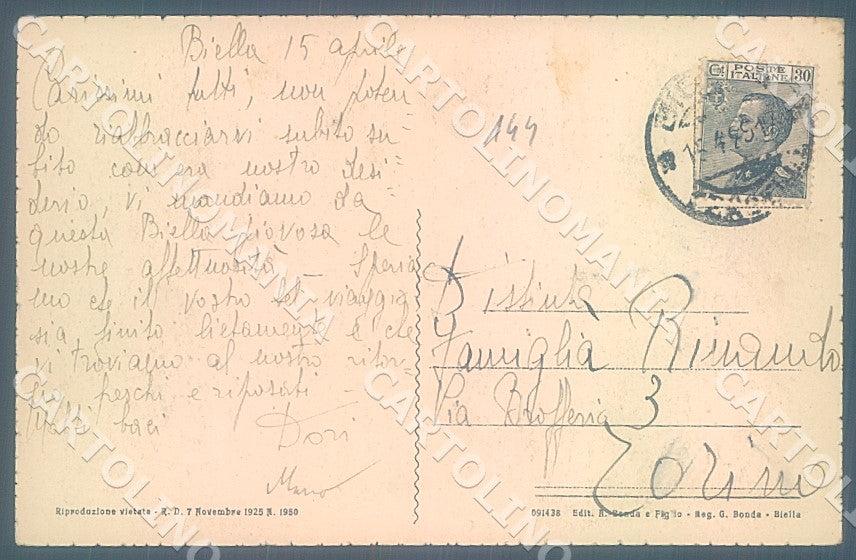 Biella 15 aprile
Carissimi tutti, non poten-
do riabbracciarvi subito su-
bito com'era nostro desi-
derio, vi mandiamo da
questa Biella piovosa le
nostre affettuosità - Speria
mo che il vostro bel viaggio
sia finito lietamente e che
vi troviamo al nostro ritor-
no freschi e riposati -
Molti baci
Dori
144
C.mi POSTE ITALIANE 30
Distinta
Famiglia Rimando
Via Brofferio 3
Torino
Riproduzione vietata - R. D. 7 Novembre 1925 N. 1950
091438 Edit. R. Bonda e Figlio - Neg. G. Bonda - Biella
CARTOLINOMANIA